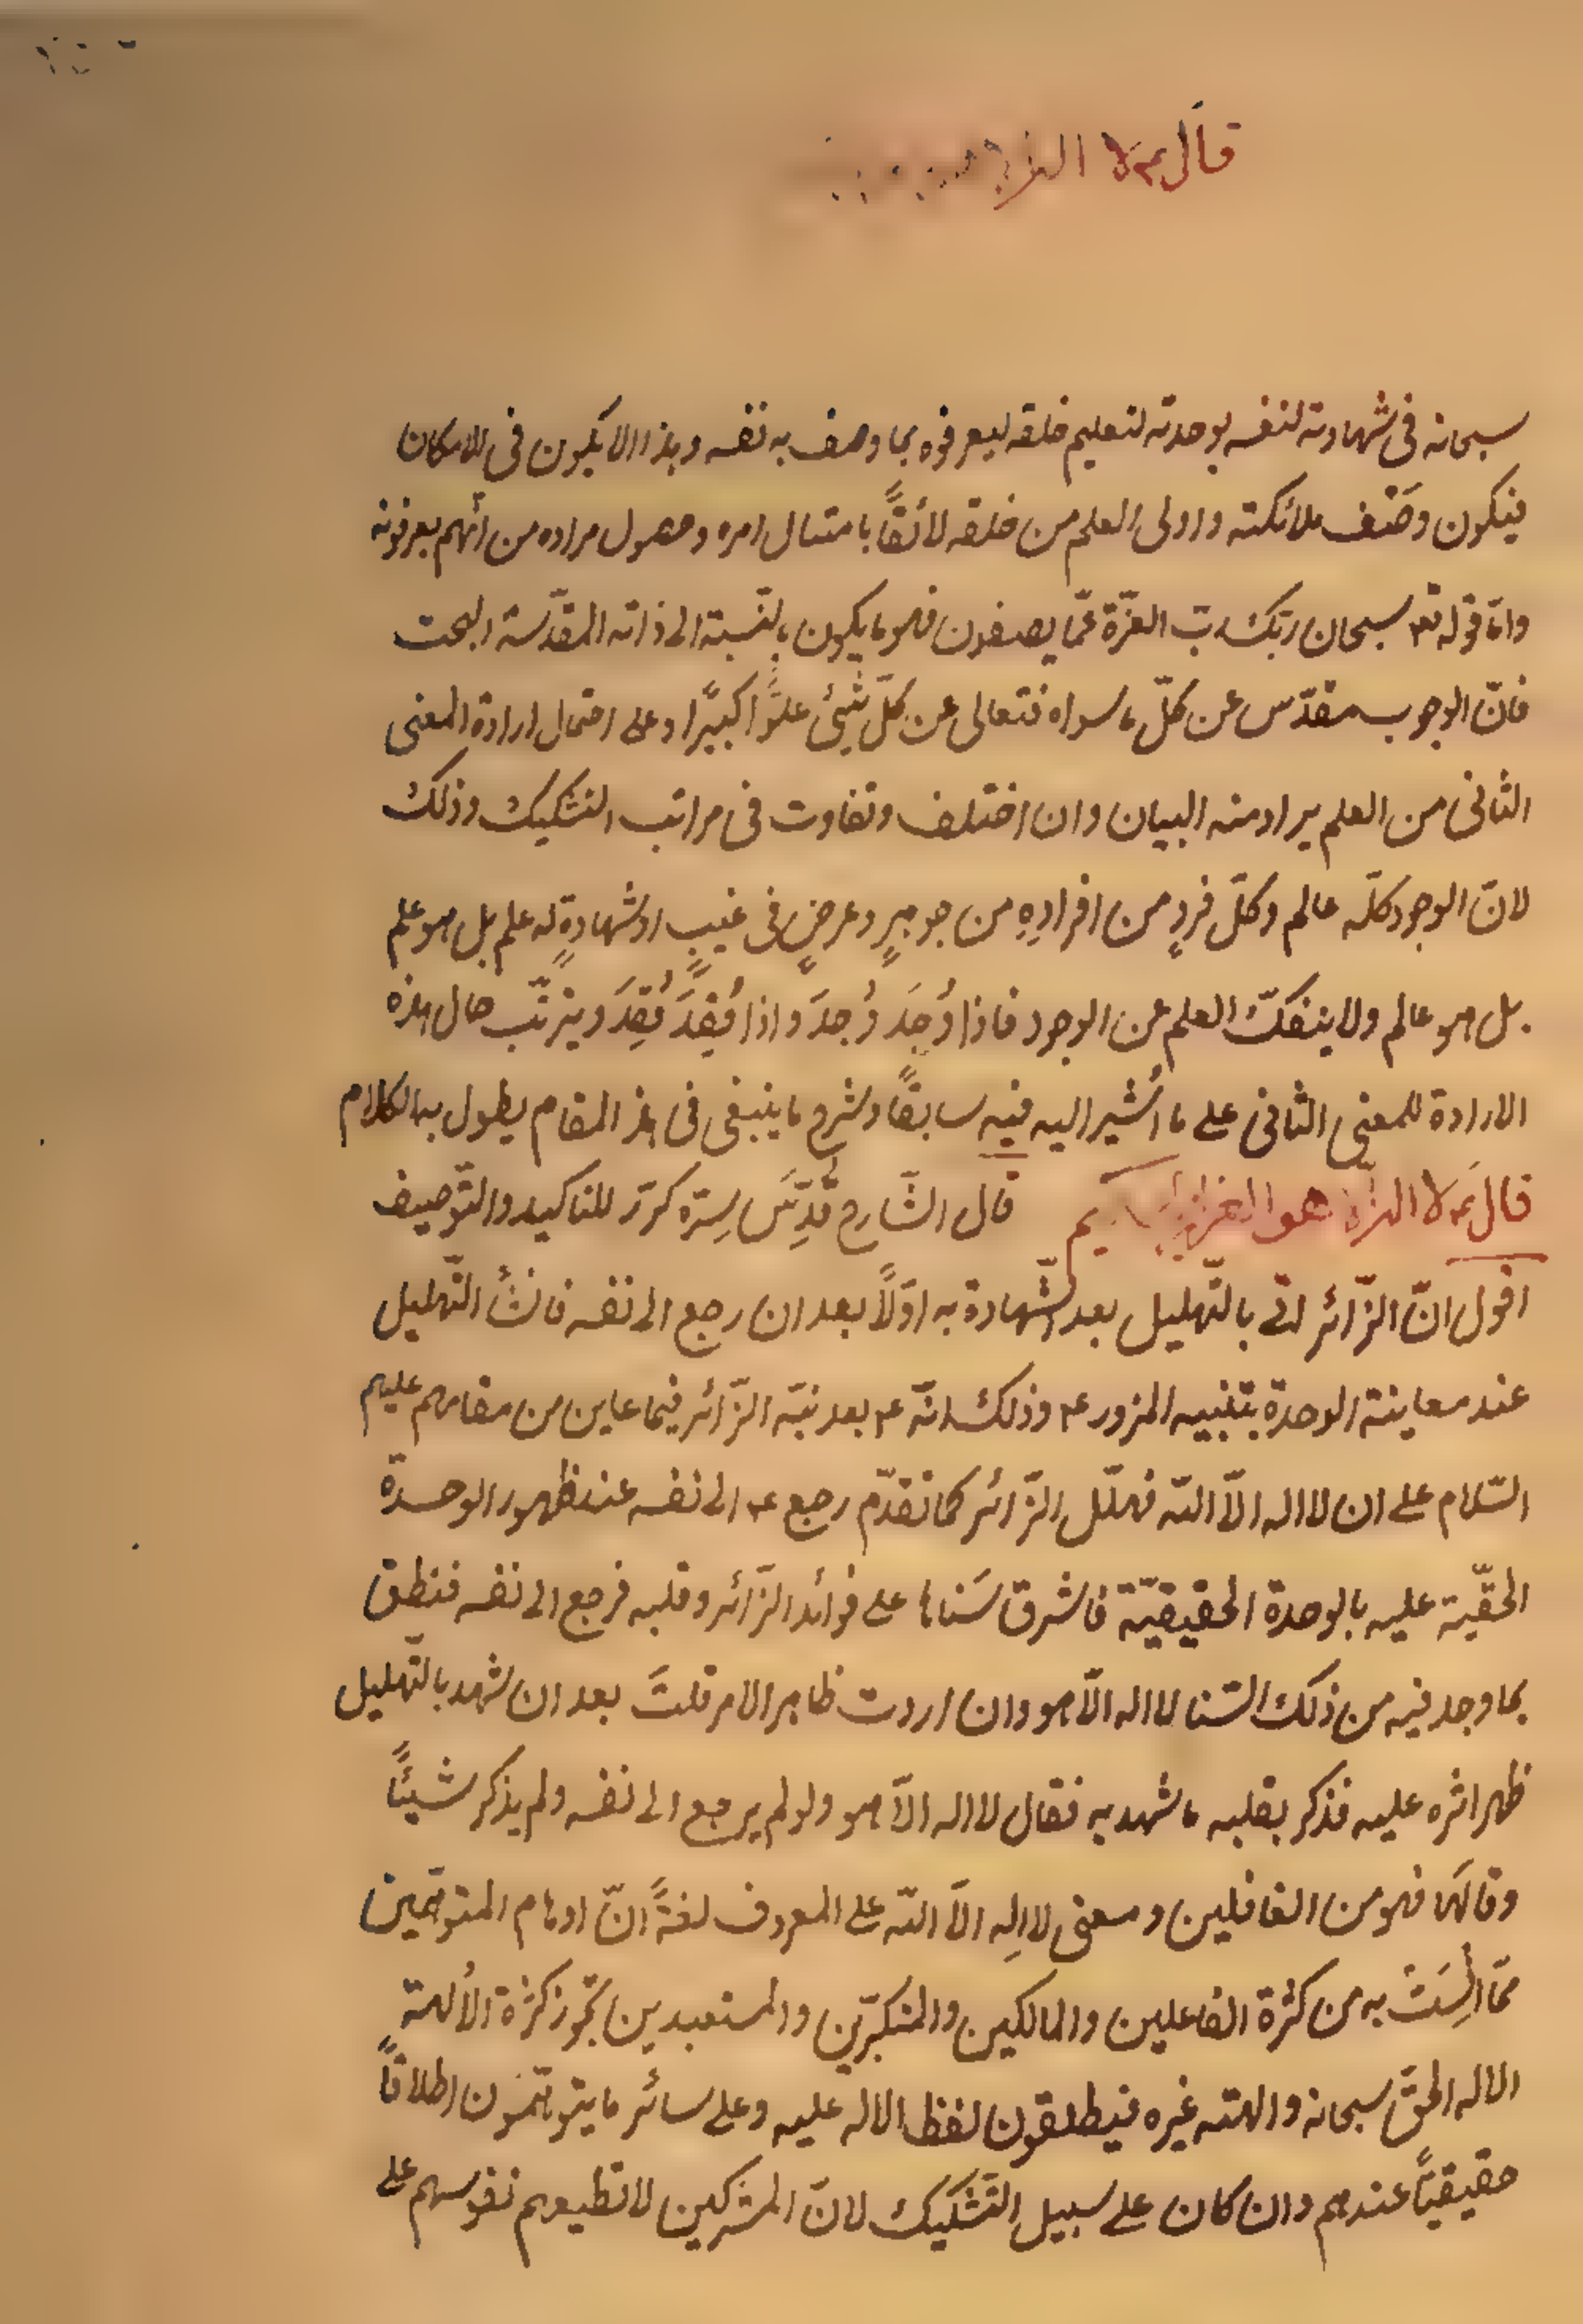 قال ع لا اله الا
سبحانه فى شهادته لنفسه بوحدته لتعليم خلقه ليعرفوه بما وصف به نفسه وهذا لا يكون فى الامكان
فيكون وصْف ملائكته واولى العلم من خلقه لائقاً بامتثال امره وحصول مراده من انّهم يعرفونه
وامّا قوله تع سبحان ربّك ربّ العزّة عمّا يصفون فهو ما يكون بالنّسبة الى ذاته المقدّسة البحت
فانّ الوجوب مقدّس عن كلّ ما سواه فتعالى عن كلّ شئ علوّاً كبيراً وعلى احتمال ارادة المعنى
الثانى من العلم يراد منه البيان وان اختلف وتفاوت فى مراتب التشكيك وذلك
لانّ الوجود كلّه عالم وكلّ فردٍ من افرادِهِ من جوهرٍ وعرضٍ فى غيبٍ او شهادةٍ له علم بل هو علم
بل هو عالم ولا ينفكّ العلم عن الوجود فاذا وُجِدَ وُجِدَ واذا فُقِدَ فُقِدَ ويترتّب حال هذه
الارادة للمعنى الثانى على ما اُشير اليه فيه سابقاً وشرح ما ينبغى فى هذا المقام يطول به الكلام
قال ع لا اله الّا هو العزيز الحكيم قال الشّارح قُدِّسَ سِرّه كرّر للتاكيد والتّوصيف
اقول انّ الزّائر اتى بالتّهليل بعد الشّهادة به اوّلاً بعد ان رجع الى نفسه فانشأ التّهليل
عند معاينة الوحدة بتنبيه المزور ع وذلك انّه ع بعد نبّه الزّائر فيما عاين من مقامهم عليهم
السّلام على ان لا اله الّا اللّه فهلّل الزّائر كما تقدّم رجع ع الى نفسه عند ظهور الوحدة
الحقّيّة عليه بالوحدة الحقيقيّة فاشرق سَناها على فوائد الزّائر وقلبه فرجع الى نفسه فنطق
بما وجد فيه من ذلك السّنا لا اله الّا هو وان اردت ظاهر الامر قلتَ بعد ان شهد بالتّهليل
ظهر اثره عليه فذكر بقلبه ما شهد به فقال لا اله الّا هو ولو لم يرجع الى نفسه ولم يذكر شيئاً
وقالها فهو من الغافلين ومعنى لا اِله الّا اللّه على المعروف لغةً انّ اوهام المتوهّمين
ممّا اَنِسَتْ به من كثرة الفاعلين والمالكين والمتكبّرين والمستعبدين تجوّز كثرة الاُلهة
الاله الحقّ سبحانه وآلهته غيره فيطلقون لفظ الاله عليه وعلى سائر ما يتوهّمون اطلاقاً
حقيقيّاً عندهم وان كان على سبيل التّشكيك لانّ المشركين لا تطيعهم نفوسهم على